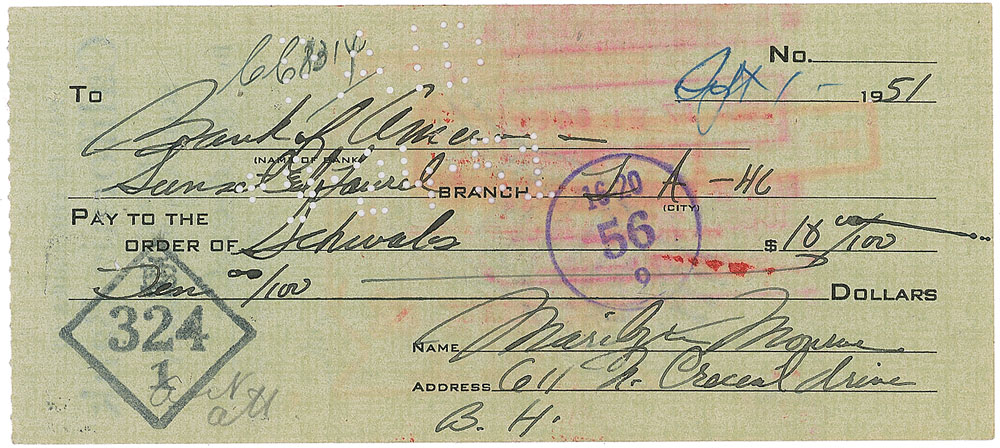 CC8314
No.
Sept 1 - 1951
To Bank of Amer - -
(NAME OF BANK)
Sunset Laurel BRANCH L A - 46
(CITY)
PAY TO THE
ORDER OF Schwabs $10 00/100
Ten 00/100 DOLLARS
16-20
56
9
324
1
NAME Marilyn Monroe
ADDRESS 611 N. Crescent Drive
B. H.